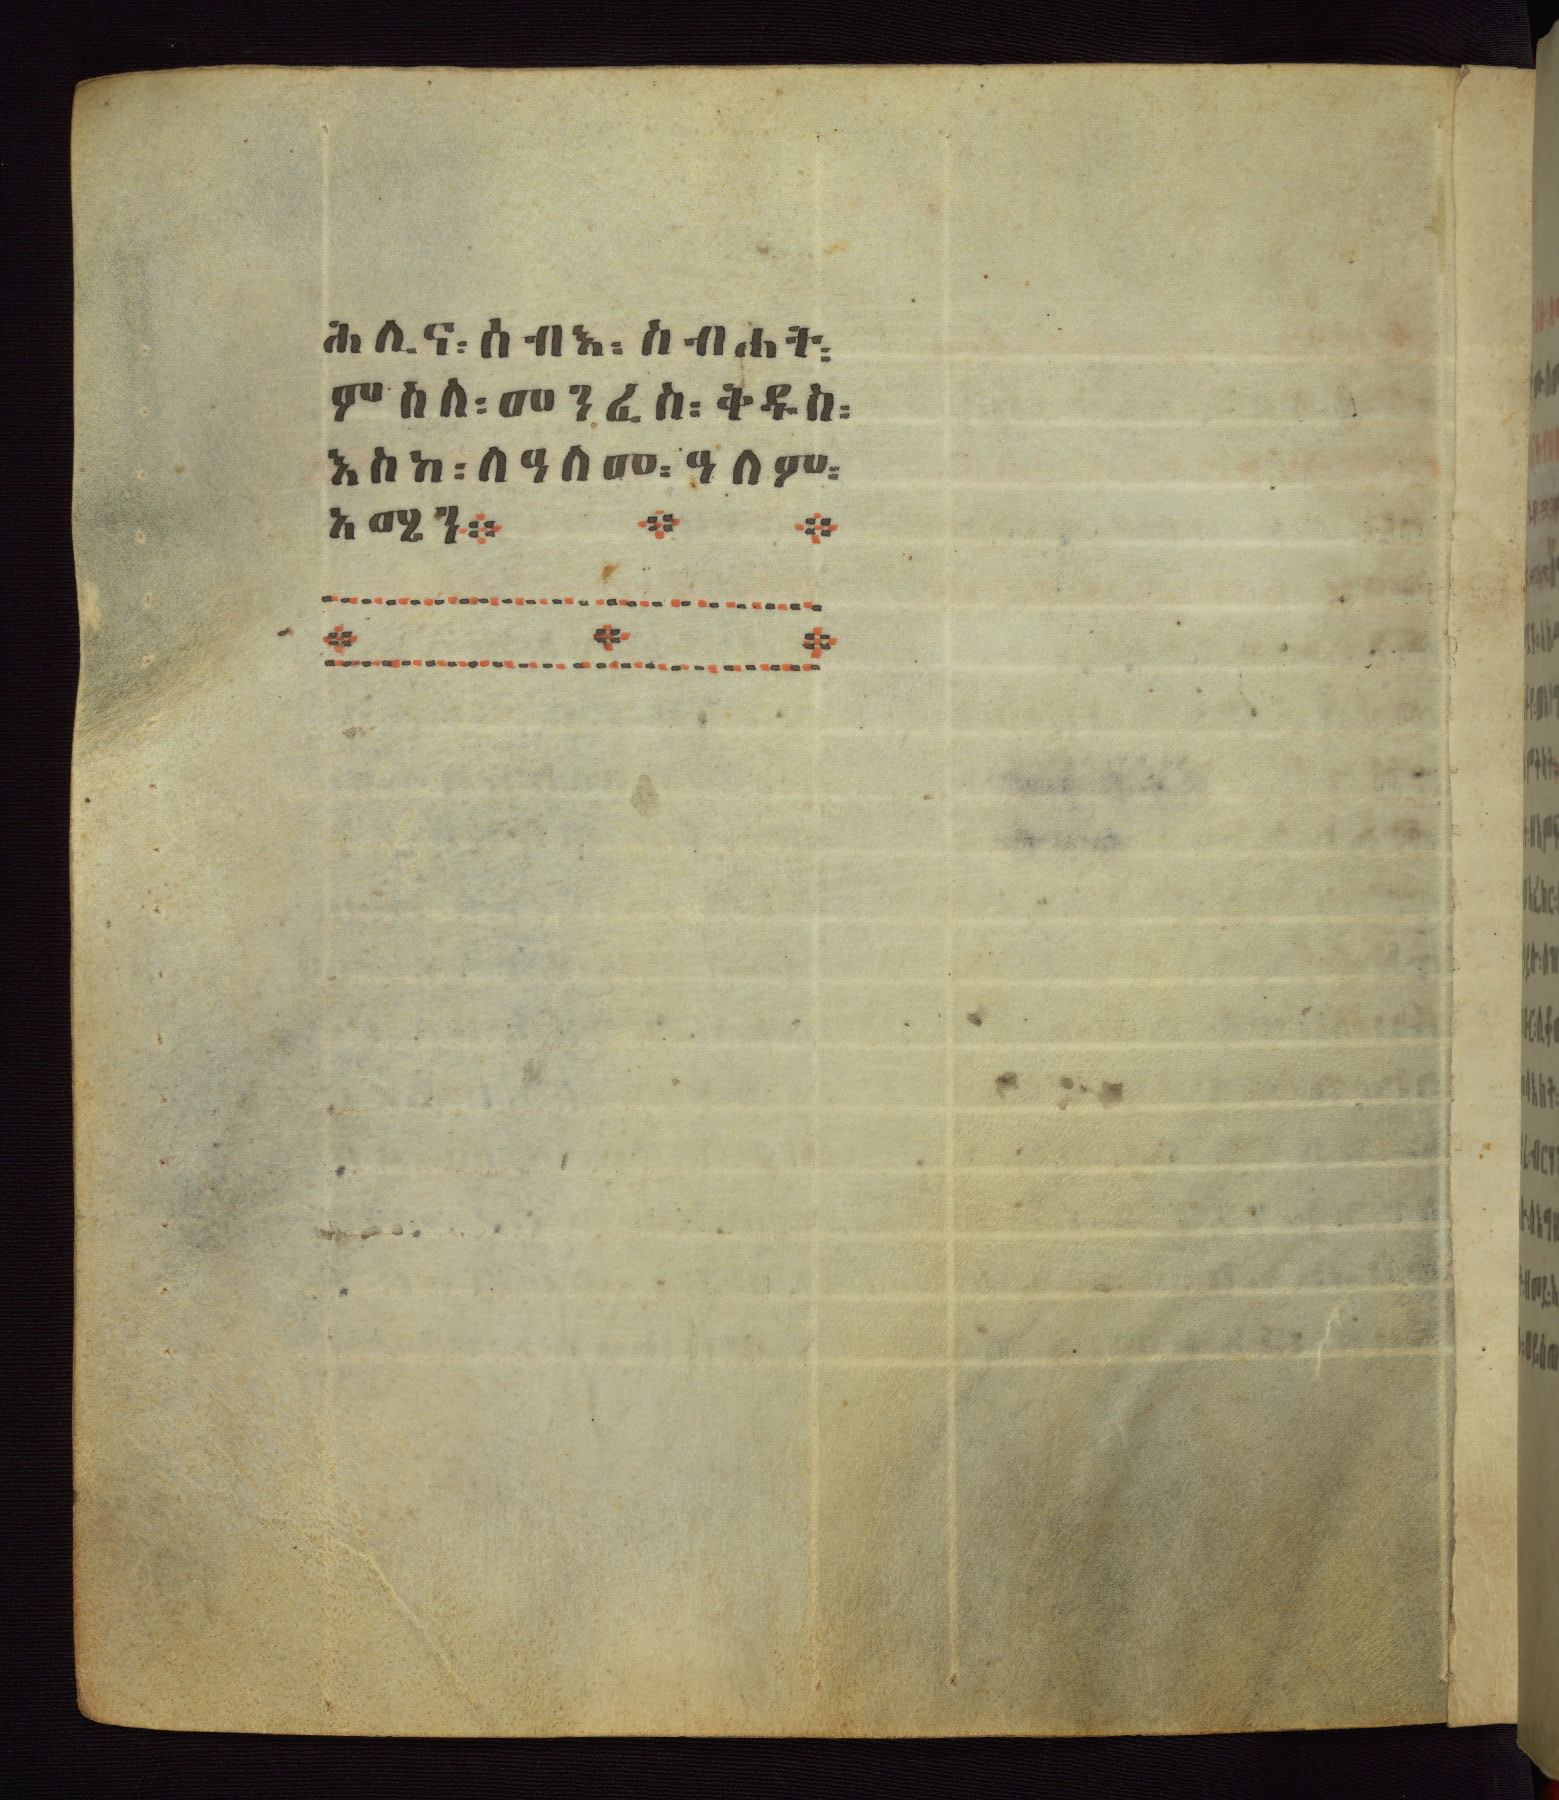 ሕሊና፡ ሰብእ፡ ስብሐት፡
ምስለ፡ መንፈስ፡ ቅዱስ፡
እስከ፡ ለዓለመ፡ ዓለም፡
አሜን።